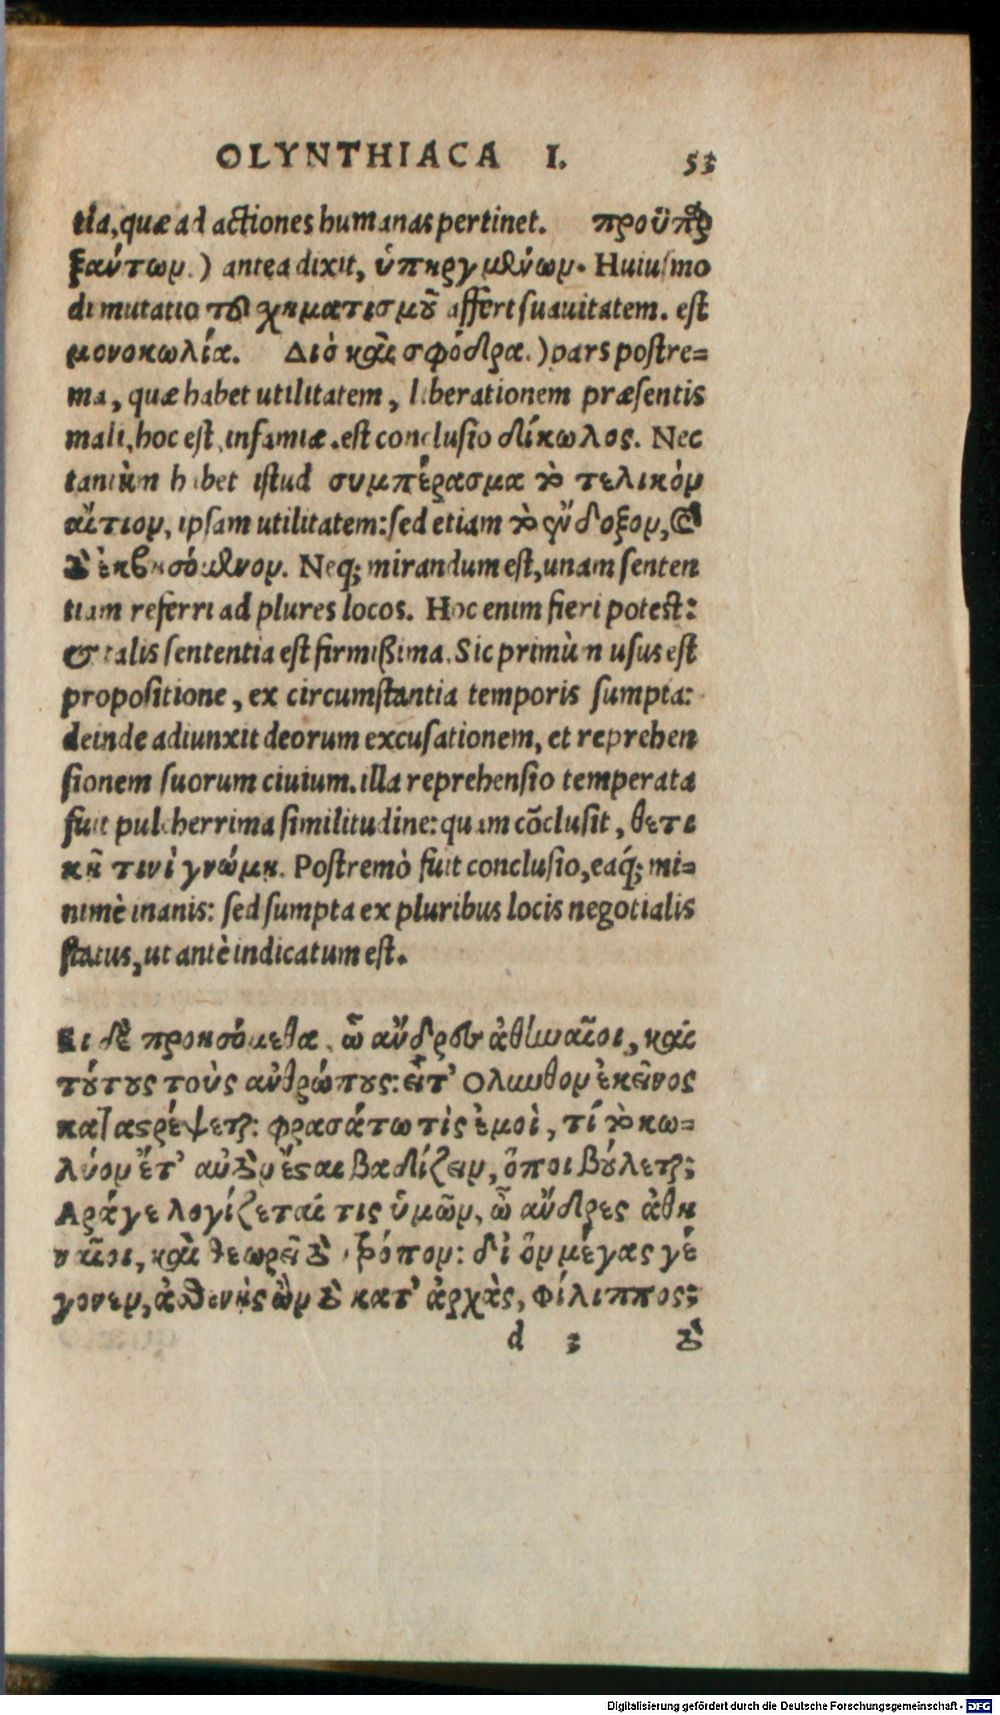 OLYNTHIACA I. 53
tia, quæ ad actiones humanas pertinet. προϋπαρ
ξάντων.) antea dixit, ὑπηργμένων. Huiusmo
di mutatio τοῦ σχηματισμοῦ affert suauitatem. est
μονοκωλία. Διὸ καὶ σφόδρα.) pars postre=
ma, quæ habet utilitatem, liberationem præsentis
mali, hoc est, infamiæ. est conclusio δίκωλος. Nec
tantùm habet istud συμπέρασμα τὸ τελικὸν
αἴτιον, ipsam utilitatem: sed etiam τὸ ἔνδοξον, καὶ
τὸ ἐκβησόμενον. Neq; mirandum est, unam senten
tiam referri ad plures locos. Hoc enim fieri potest:
& talis sententia est firmißima. Sic primùm usus est
propositione, ex circumstantia temporis sumpta:
deinde adiunxit deorum excusationem, et reprehen
sionem suorum ciuium. illa reprehensio temperata
fuit pulcherrima similitudine: quam cōclusit, θετι
κῇ τινὶ γνώμῃ. Postremò fuit conclusio, eaq́; mi=
nimè inanis: sed sumpta ex pluribus locis negotialis
status, ut antè indicatum est.
Ει δὲ προησόμεθα, ὦ ἄνδρες ἀθηναῖοι, καὶ
τούτους τοὺς ἀνθρώπους: εἶτ' Ολυνθον ἐκεῖνος
καταστρέψεται: φρασάτω τὶς ἐμοὶ, τί τὸ κω=
λύον ἔτ' αὐτὸν ἔσται βαδίζειν, ὅποι βούλεται;
Αράγε λογίζεταί τις ὑμῶν, ὦ ἄνδρες ἀθη
ναῖοι, καὶ θεωρεῖ τὸν τρόπον: δι' ὃν μέγας γέ
γονεν, ἀσθενὴς ὢν τὸ κατ' ἀρχὰς, Φίλιππος;
d 3 τὸ
Digitalisierung gefördert durch die Deutsche Forschungsgemeinschaft - DFG